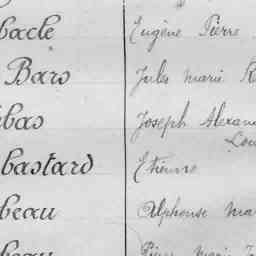 bacle Eugène Pierre
Bars Jules marie
bas Joseph Alexan
Lou
bastard Etienne
beau Alphonse Mar
beau Pierre Marie